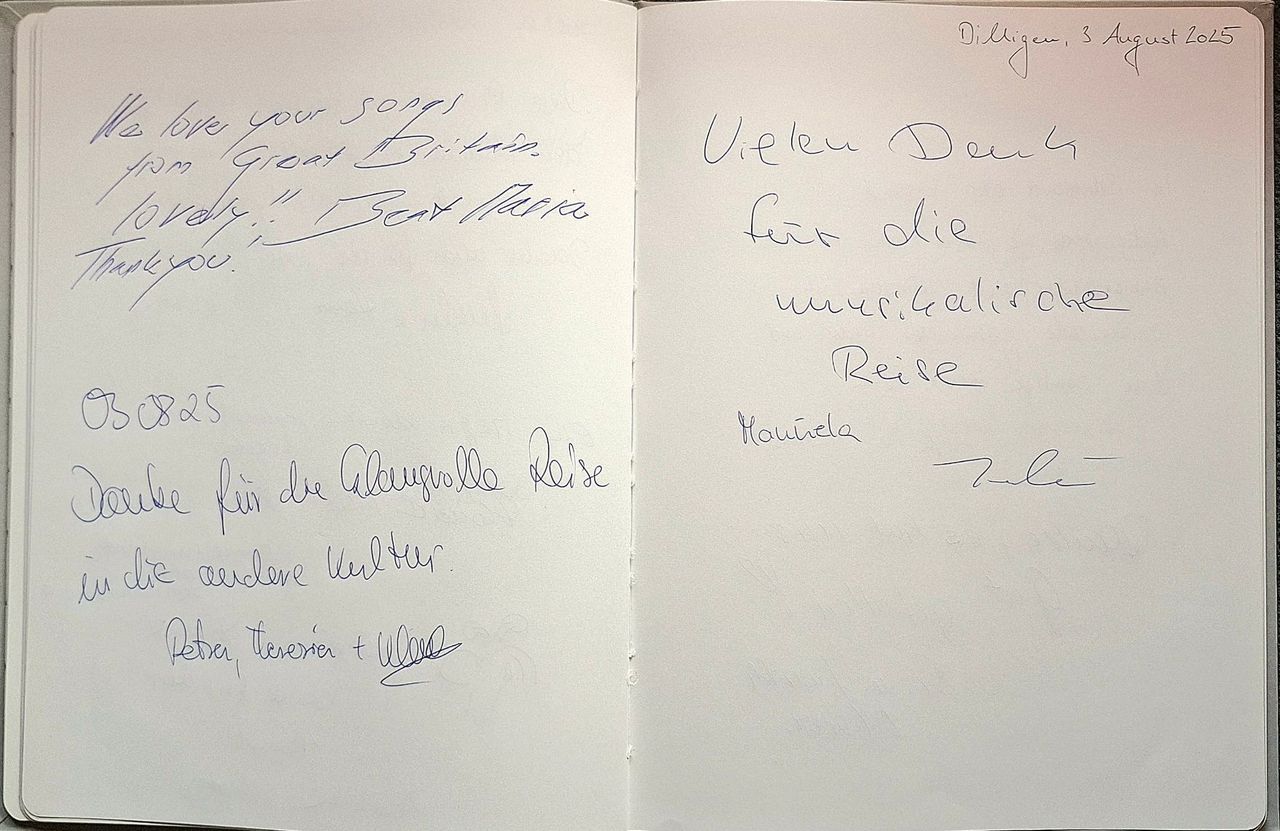 We love your songs
from Great Britain.
lovely!! Beat Maria
Thank you!
03 08 25
Danke für die Klangvolle Reise
in die andere Kultur.
Petra, Theresia +
Dilligen, 3 August 2025
Vielen Dank
für die
musikalische
Reise
Manuela